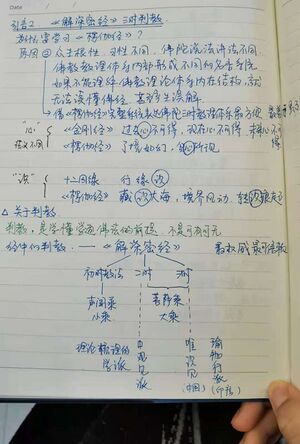 Date
引言2 《解深密经》三时判教
为什么要学习《楞伽经》?
原因② 众生根性、习性不同,佛陀说法讲法不同.
佛教教理体系内部形成不同的
如果不能理解佛教理论体系内在结构,就
无法读懂佛经,甚至生误解.
“心” 《金刚经》过去心不可得,现在心不可得 未来心不可得
意义不同 《楞伽经》了境如幻,自心所现
“识” 十二因缘 行缘识
《楞伽经》藏识大海,境界风动,转识浪
△ 关于判教
判教,是学懂学通佛法的前提,不是可有可无
经中的判教. —— 《解深密经》 教权威最可信教
初时教法 二时 三时
声闻乘 菩萨乘
小乘 大乘
理论梳理的学派 中观见派 唯识见 瑜伽行派
(中国) (印度)